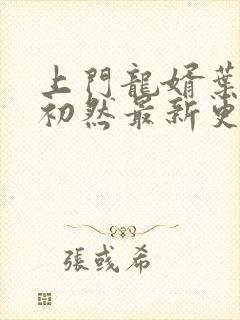 上門龍婿葉
初然最新更
張彧希